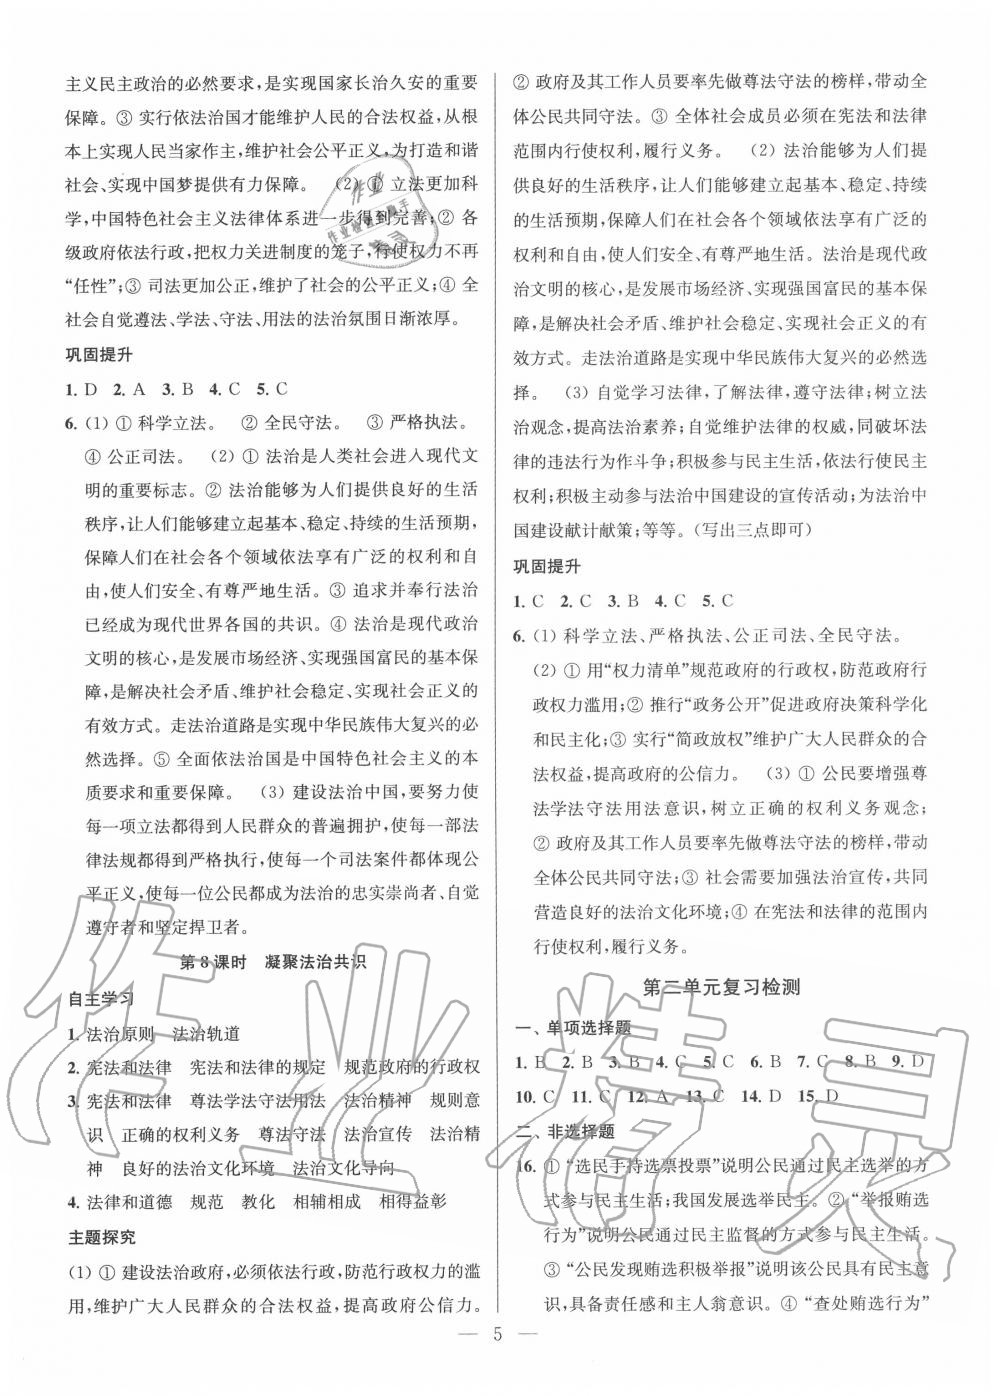 主义民主政治的必然要求,是实现国家长治久安的重要
保障。③ 实行依法治国才能维护人民的合法权益,从根
本上实现人民当家作主,维护社会公平正义,为打造和谐
社会、实现中国梦提供有力保障。 (2) ① 立法更加科
学,中国特色社会主义法律体系进一步得到完善;② 各
级政府依法行政,把权力关进制度的笼子,行使权力不再
“任性”;③ 司法更加公正,维护了社会的公平正义;④ 全
社会自觉遵法、学法、守法、用法的法治氛围日渐浓厚。
巩固提升
1. D 2. A 3. B 4. C 5. C
6. (1) ① 科学立法。 ② 全民守法。 ③ 严格执法。
④ 公正司法。 (2) ① 法治是人类社会进入现代文
明的重要标志。② 法治能够为人们提供良好的生活
秩序,让人们能够建立起基本、稳定、持续的生活预期,
保障人们在社会各个领域依法享有广泛的权利和自
由,使人们安全、有尊严地生活。③ 追求并奉行法治
已经成为现代世界各国的共识。④ 法治是现代政治
文明的核心,是发展市场经济、实现强国富民的基本保
障,是解决社会矛盾、维护社会稳定、实现社会正义的
有效方式。走法治道路是实现中华民族伟大复兴的必
然选择。⑤ 全面依法治国是中国特色社会主义的本
质要求和重要保障。 (3) 建设法治中国,要努力使
每一项立法都得到人民群众的普遍拥护,使每一部法
律法规都得到严格执行,使每一个司法案件都体现公
平正义,使每一位公民都成为法治的忠实崇尚者、自觉
遵守者和坚定捍卫者。
第 8 课时 凝聚法治共识
自主学习
1. 法治原则 法治轨道
2. 宪法和法律 宪法和法律的规定 规范政府的行政权
3. 宪法和法律 尊法学法守法用法 法治精神 规则意
识 正确的权利义务 尊法守法 法治宣传 法治精
神 良好的法治文化环境 法治文化导向
4. 法律和道德 规范 教化 相辅相成 相得益彰
主题探究
(1) ① 建设法治政府,必须依法行政,防范行政权力的滥
用,维护广大人民群众的合法权益,提高政府公信力。
② 政府及其工作人员要率先做尊法守法的榜样,带动全
体公民共同守法。③ 全体社会成员必须在宪法和法律
范围内行使权利,履行义务。 (2) 法治能够为人们提
供良好的生活秩序,让人们能够建立起基本、稳定、持续
的生活预期,保障人们在社会各个领域依法享有广泛的
权利和自由,使人们安全、有尊严地生活。法治是现代政
治文明的核心,是发展市场经济、实现强国富民的基本保
障,是解决社会矛盾、维护社会稳定、实现社会正义的有
效方式。走法治道路是实现中华民族伟大复兴的必然选
择。 (3) 自觉学习法律,了解法律,遵守法律;树立法
治观念,提高法治素养;自觉维护法律的权威,同破坏法
律的违法行为作斗争;积极参与民主生活,依法行使民主
权利;积极主动参与法治中国建设的宣传活动;为法治中
国建设献计献策;等等。(写出三点即可)
巩固提升
1. C 2. C 3. B 4. C 5. C
6. (1) 科学立法、严格执法、公正司法、全民守法。
(2) ① 用“权力清单”规范政府的行政权,防范政府行
政权力滥用;② 推行“政务公开”促进政府决策科学化
和民主化;③ 实行“简政放权”维护广大人民群众的合
法权益,提高政府的公信力。 (3) ① 公民要增强尊
法学法守法用法意识,树立正确的权利义务观念;
② 政府及其工作人员要率先做尊法守法的榜样,带动
全体公民共同守法;③ 社会需要加强法治宣传,共同
营造良好的法治文化环境;④ 在宪法和法律的范围内
行使权利,履行义务。
第二单元复习检测
一、单项选择题
1. B 2. B 3. B 4. C 5. C 6. B 7. C 8. B 9. D
10. C 11. C 12. A 13. C 14. D 15. D
二、非选择题
16. ① “选民手持选票投票”说明公民通过民主选举的方
式参与民主生活;我国发展选举民主。② “举报贿选
行为”说明公民通过民主监督的方式参与民主生活。
③ “公民发现贿选积极举报”说明该公民具有民主意
识,具备责任感和主人翁意识。④ “查处贿选行为”
— 5 —
作业精灵